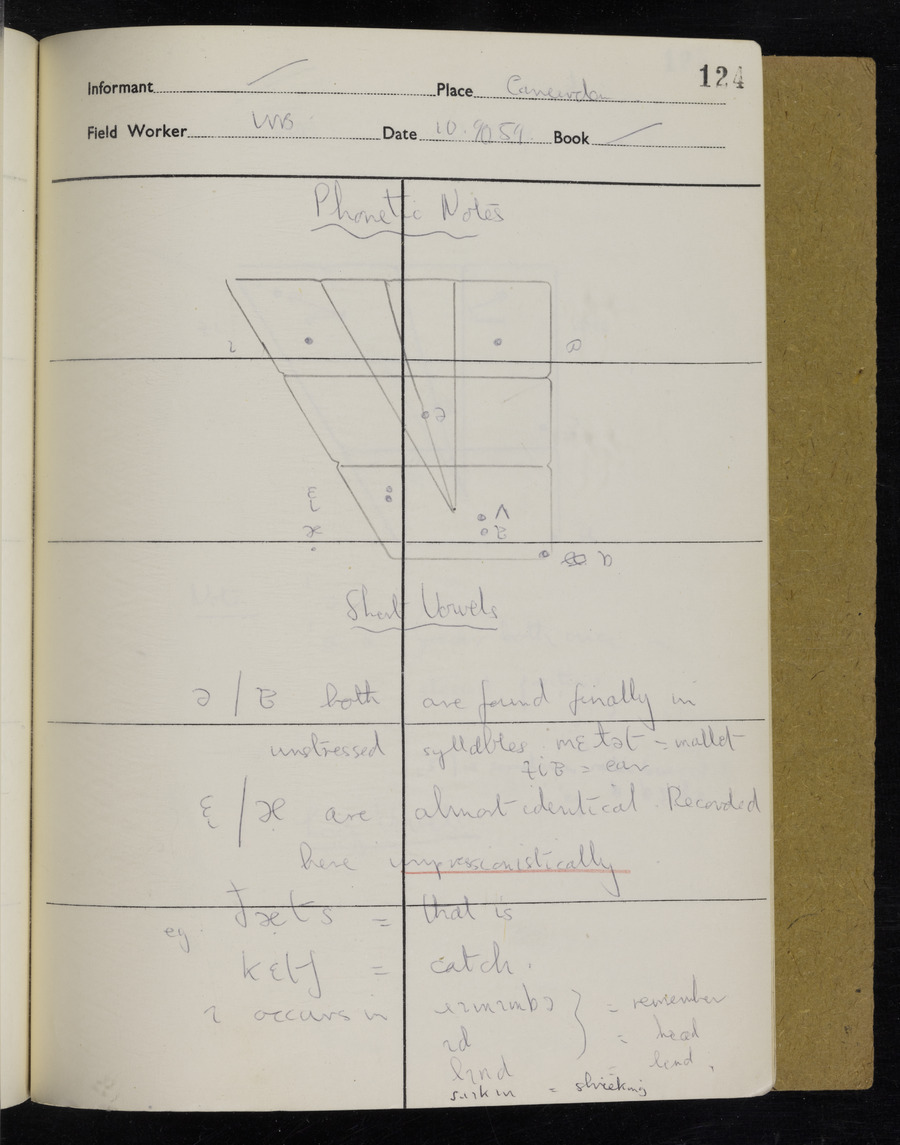 124
Informant / Place Canewdon
Field Worker WNS Date 10.9.59. Book /
Phonetic Notes
ɪ
ə
ɛ
æ
ʌ
ɐ
ɒ
Short Vowels
ə / ɐ both are found finally in
unstressed syllables mɛtət = mallet
= ear
ɛ / æ are almost identical. Recorded
here impressionistically
eg. ðæts = that is
kɛtʃ = catch.
ɪ occurs in } = remember
ɪd = head
lɪnd = lend.
= shrieking